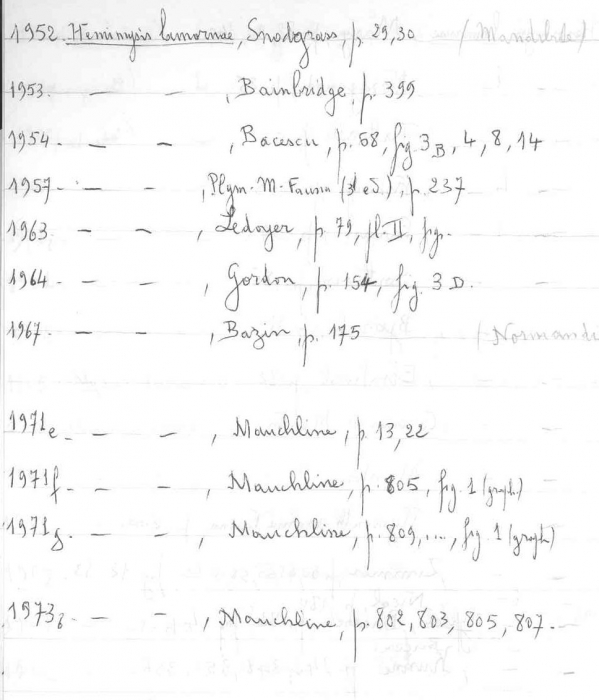 1952 Hemimysis lamornae, Snodgrass, p. 29,30 (Mandibles)
1953. — — , Bainbridge, p. 399
1954. — — , Bacescu, p. 68, fig 3B, 4, 8, 14
1957. — — , Plym. M. Fauna (3d ed.), p. 237
1963 — — , Ledoyer, p 79, pl. II, fig.
1964 — — , Gordon, p. 154, fig. 3 D.
1967 — — , Bazin, p. 175 (Normandi
1971e. — — , Mauchline, p. 13,22
1971f — — , Mauchline, p. 805, fig. 1 (graph.)
1971g. — — , Mauchline, p. 809, ...., fig 1 (graph)
1973b — — , Mauchline, p. 802, 803, 805, 807.